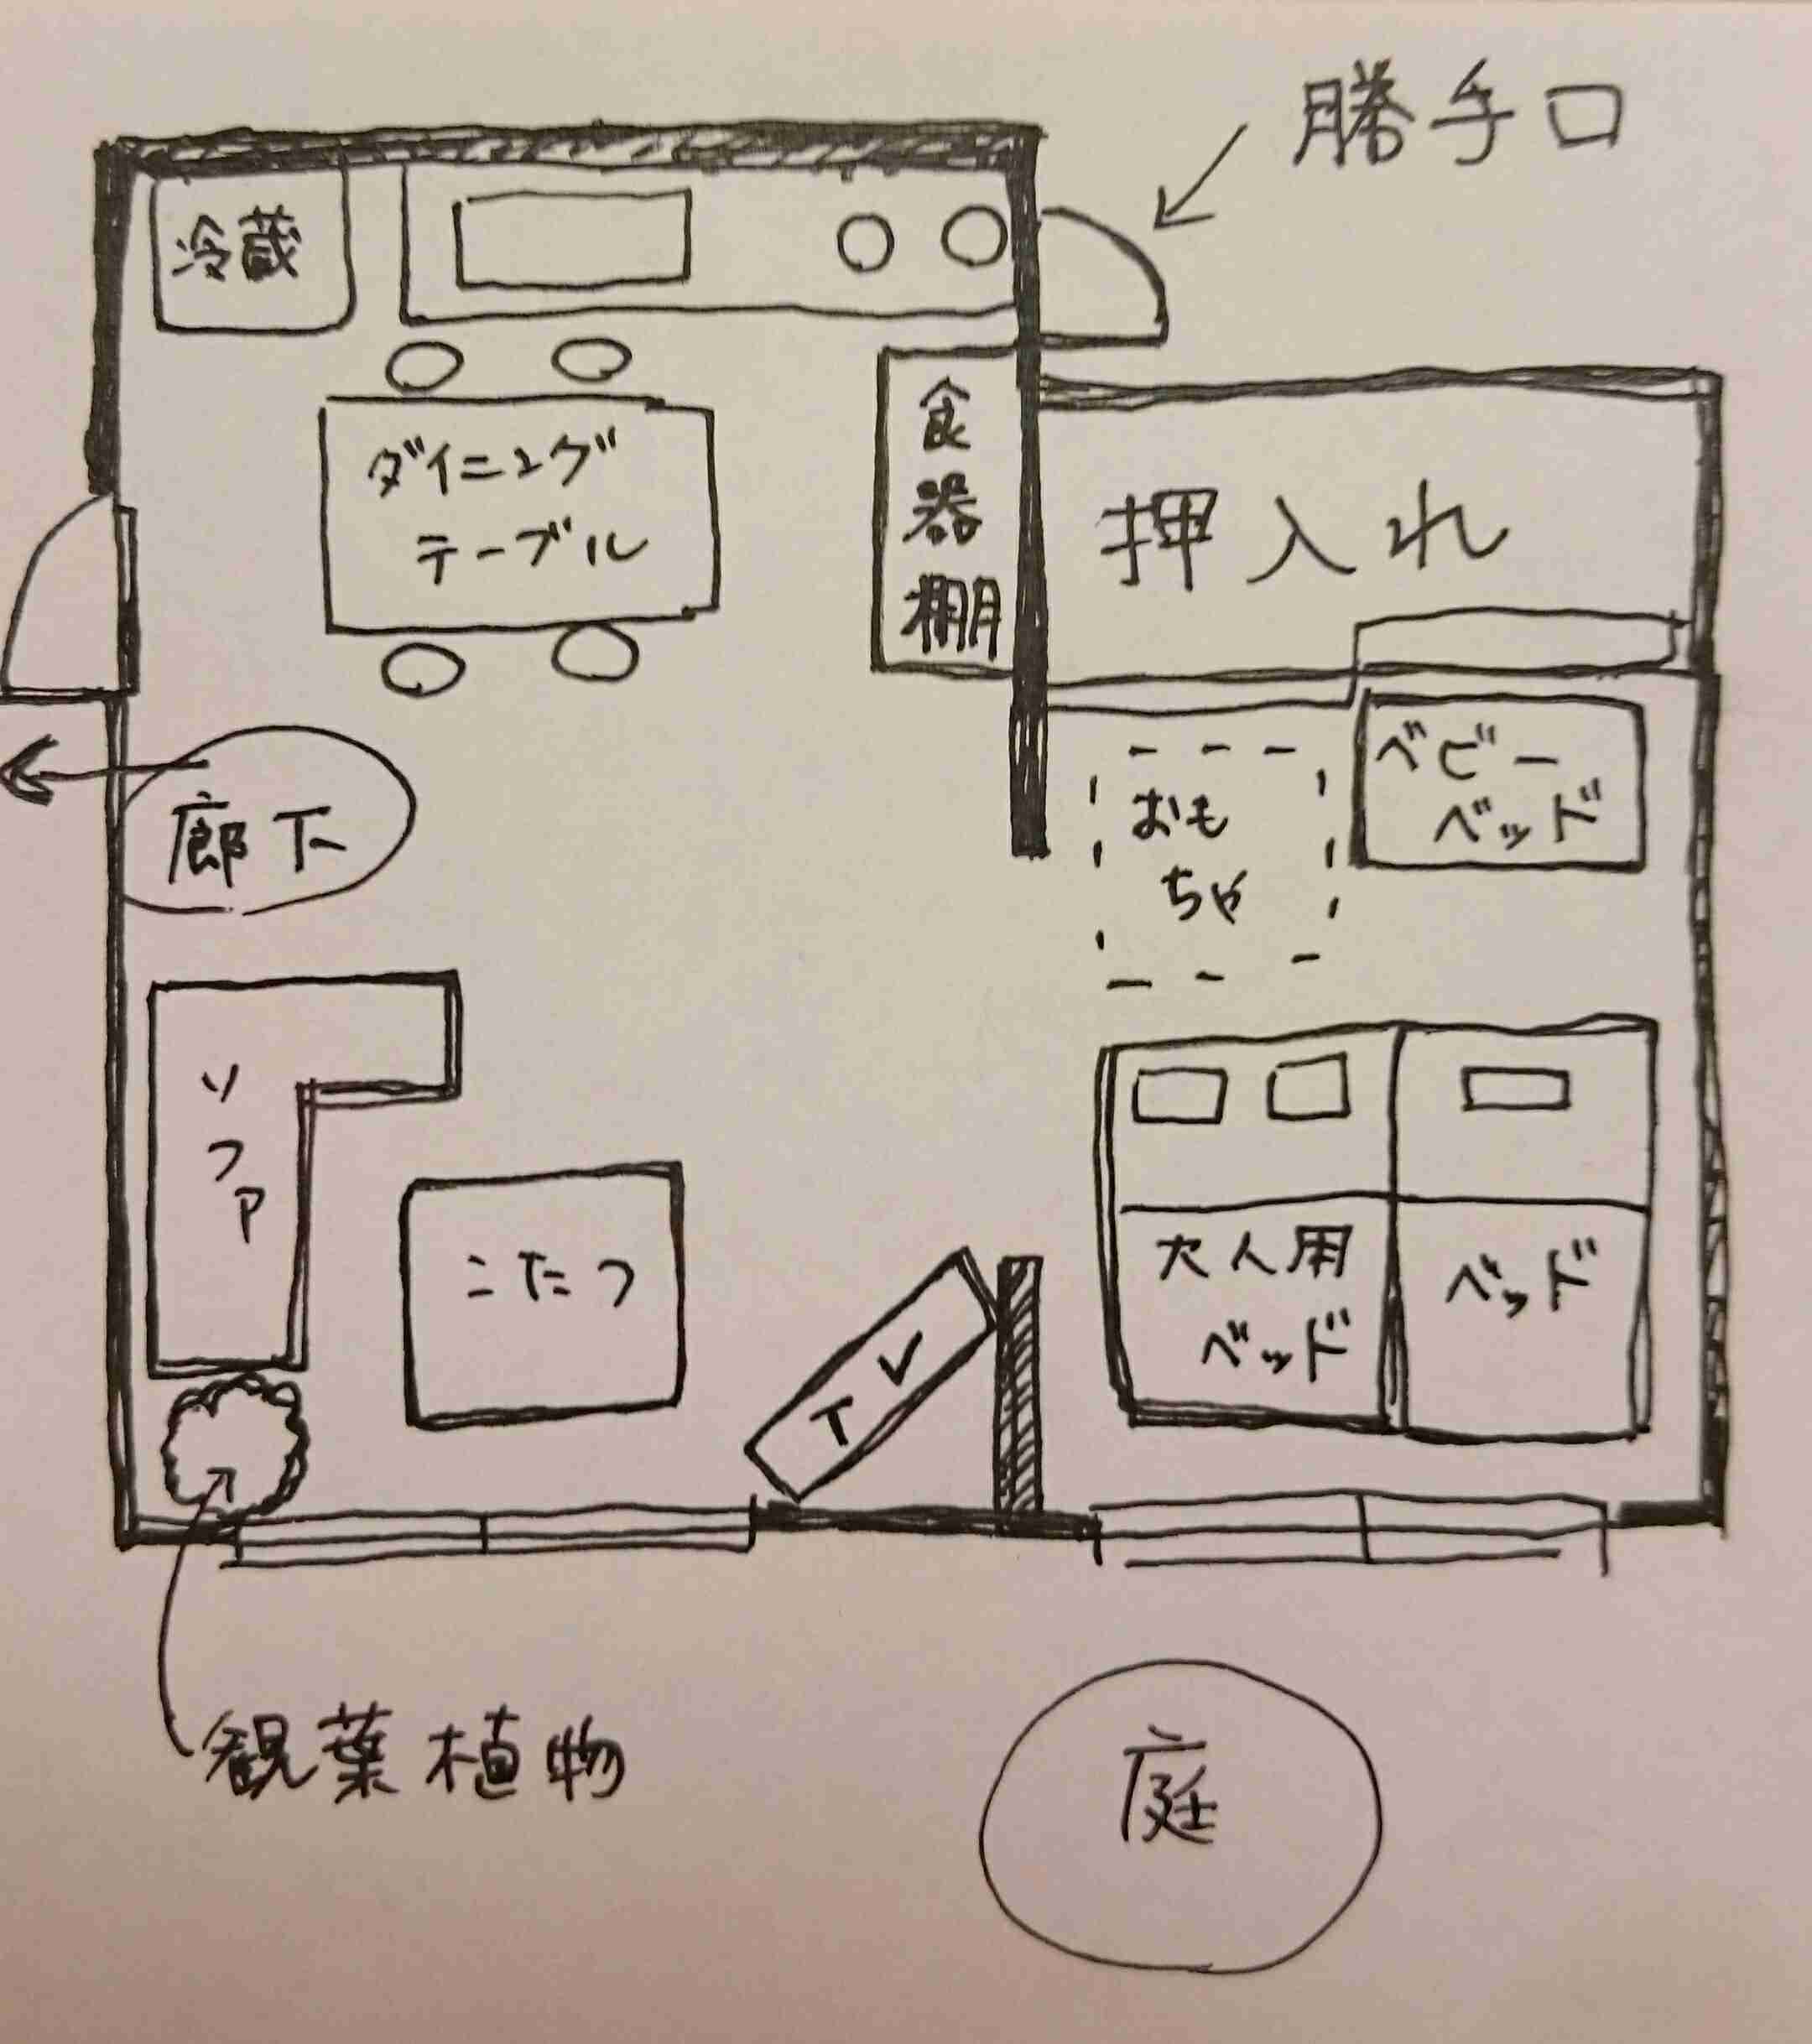 勝手口
冷蔵
ダイニング
テーブル
食器棚
押入れ
廊下
おも
ちゃ
ベビー
ベッド
ソファ
こたつ
TV
大人用
ベッド
ベッド
観葉植物
庭